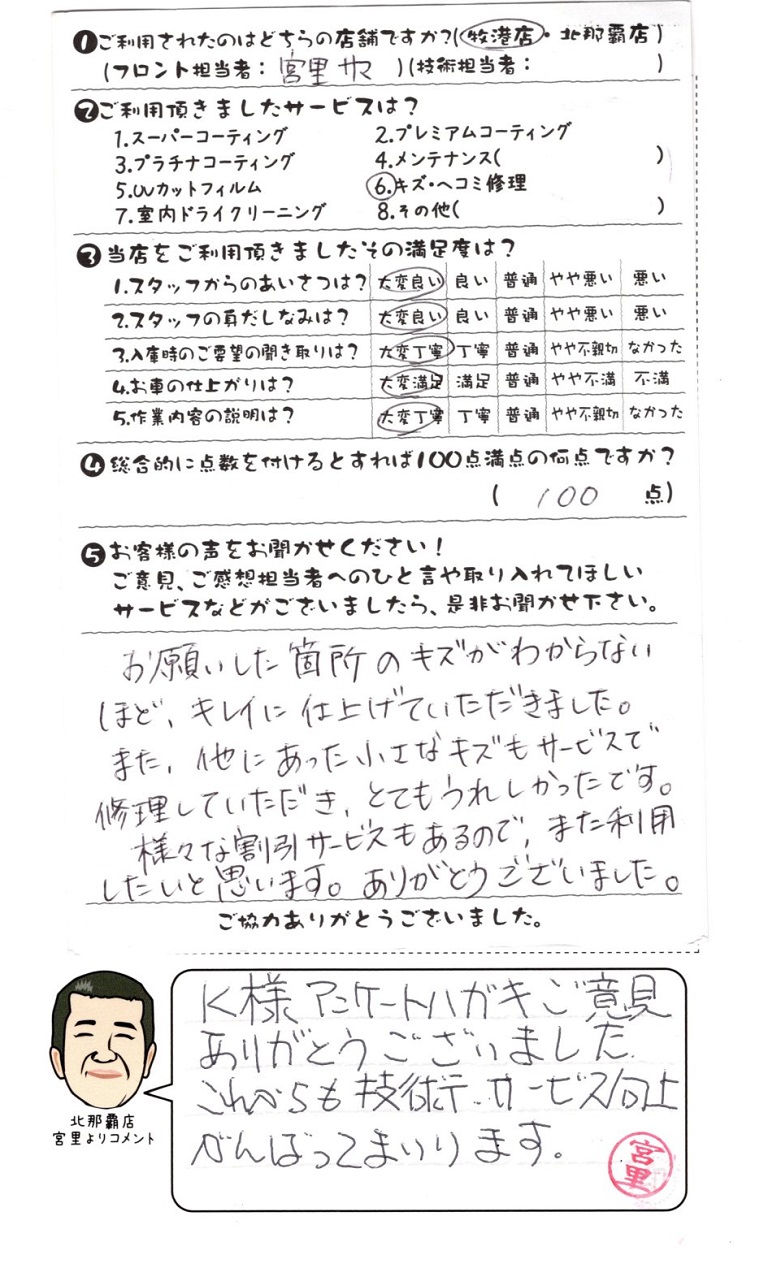 ❶ご利用されたのはどちらの店舗ですか?(牧港店・北那覇店)
(フロント担当者: 宮里 サマ )(技術担当者: )
❷ご利用頂きましたサービスは?
1.スーパーコーティング 2.プレミアムコーティング
3.プラチナコーティング 4.メンテナンス( )
5.UVカットフィルム 6.キズ・ヘコミ修理
7.室内ドライクリーニング 8.その他( )
❸当店をご利用頂きましたその満足度は?
1.スタッフからのあいさつは? 大変良い 良い 普通 やや悪い 悪い
2.スタッフの身だしなみは? 大変良い 良い 普通 やや悪い 悪い
3.入庫時のご要望の聞き取りは? 大変丁寧 丁寧 普通 やや不親切 なかった
4.お車の仕上がりは? 大変満足 満足 普通 やや不満 不満
5.作業内容の説明は? 大変丁寧 丁寧 普通 やや不親切 なかった
❹総合的に点数を付けるとすれば100点満点の何点ですか?
( 100 点)
❺お客様の声をお聞かせください!
ご意見、ご感想担当者へのひと言や取り入れてほしい
サービスなどがございましたら、是非お聞かせ下さい。
お願いした箇所のキズがわからない
ほど、キレイに仕上げていただきました。
また、他にあった小さなキズもサービスで
修理していただき、とてもうれしかったです。
様々な割引サービスもあるので、また利用
したいと思います。ありがとうございました。
ご協力ありがとうございました。
K様 アンケートハガキご意見
ありがとうございました
これからも技術テ、サービス向上
がんばってまいります。
北那覇店
宮里よりコメント
宮里